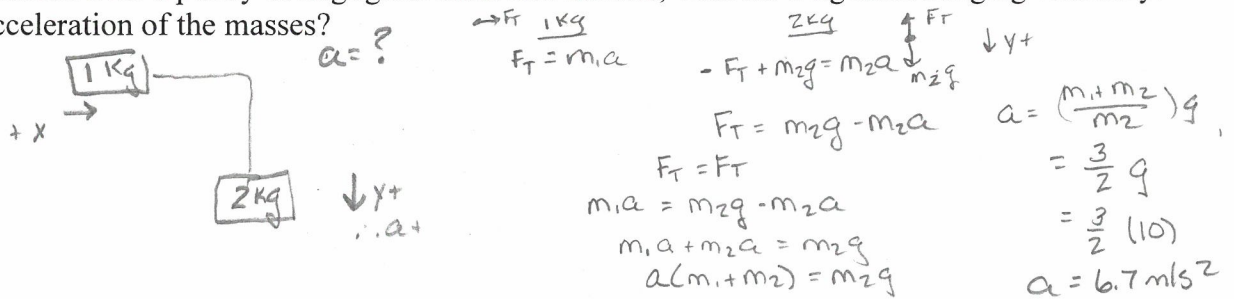 cceleration of the masses?
a = ?
1 Kg
→
+ x
2 Kg
↓ y+
∴ a+
→ FT 1 Kg
FT = m₁a
2 Kg
FT
m₂g
↓ y+
- FT + m₂g = m₂a
FT = m₂g - m₂a
FT = FT
m₁a = m₂g - m₂a
m₁a + m₂a = m₂g
a(m₁ + m₂) = m₂g
a = (m₁ + m₂ / m₂) g
= 3/2 g
= 3/2 (10)
a = 6.7 m/s²